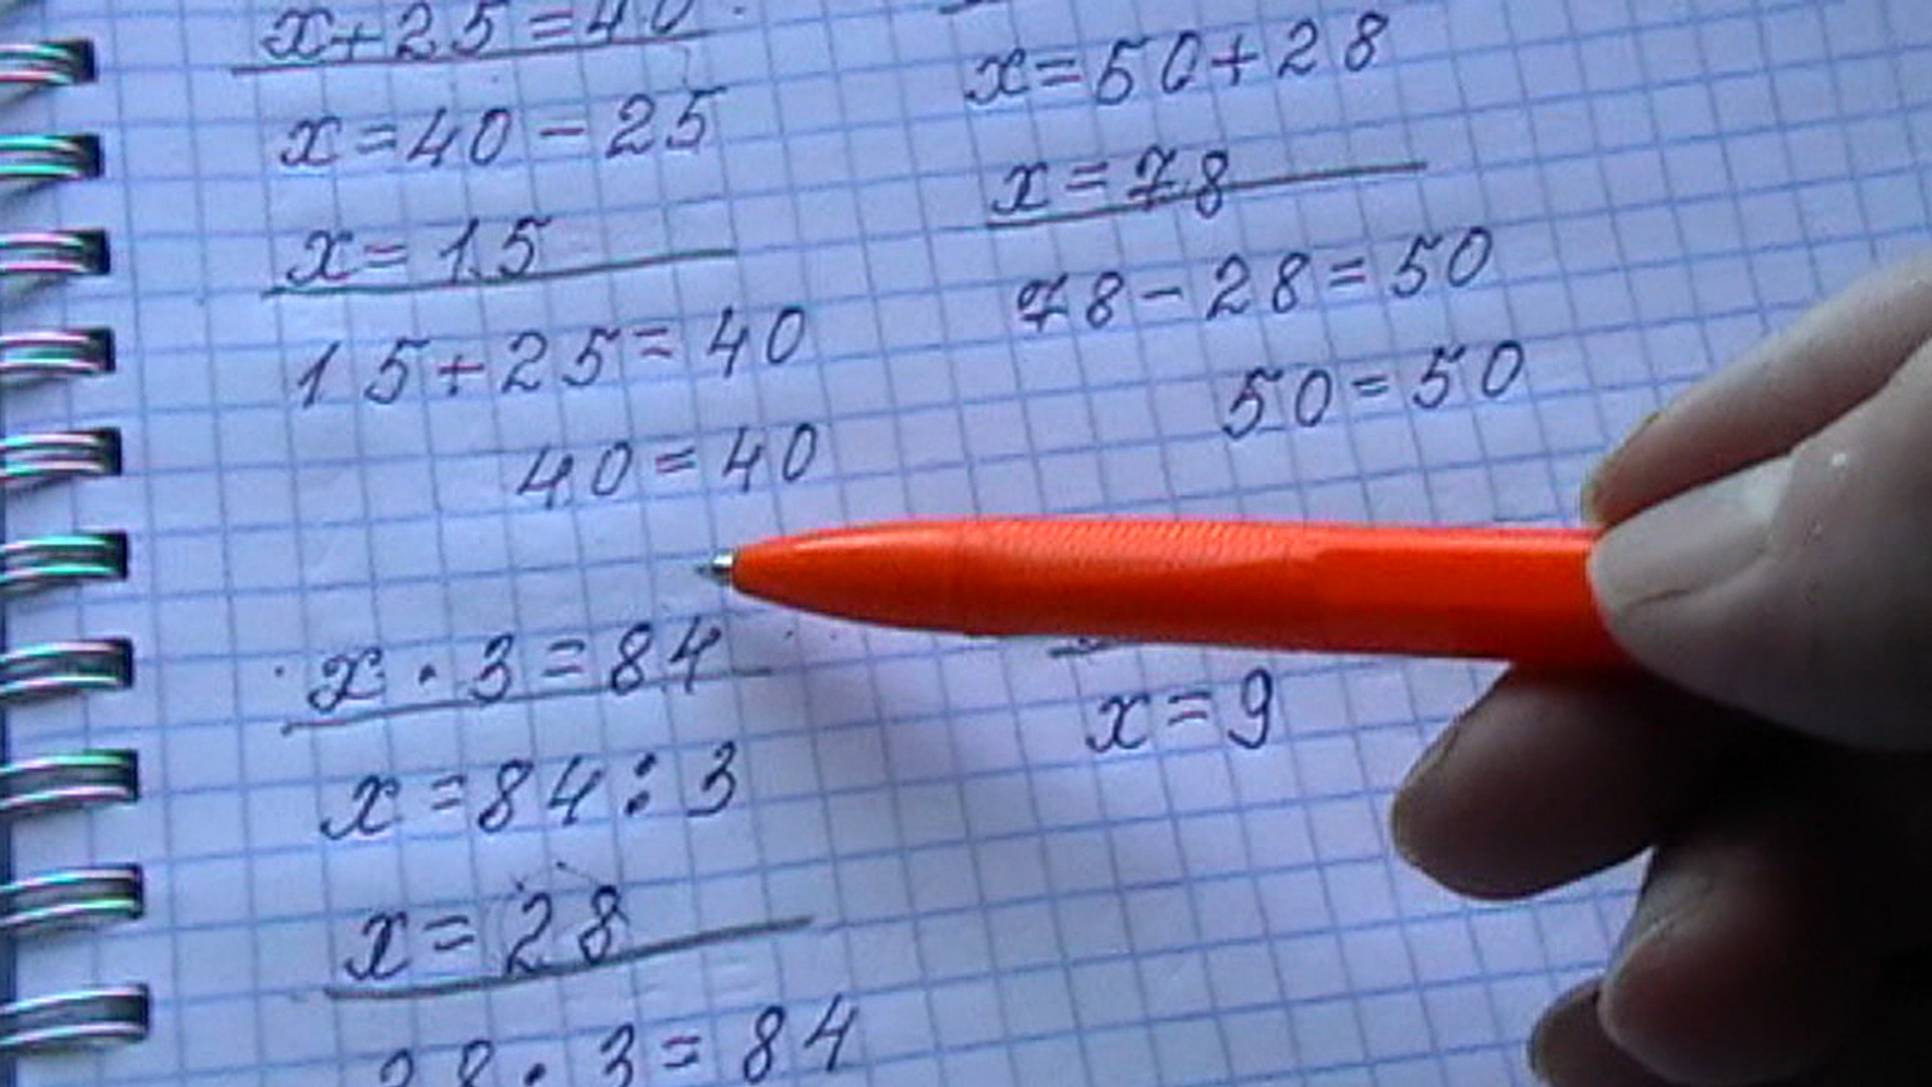 x+25=40
x=40-25
x=15
15+25=40
40=40
x=50+28
x=78
78-28=50
50=50
x·3=84
x=84:3
x=28
28·3=84
x=9